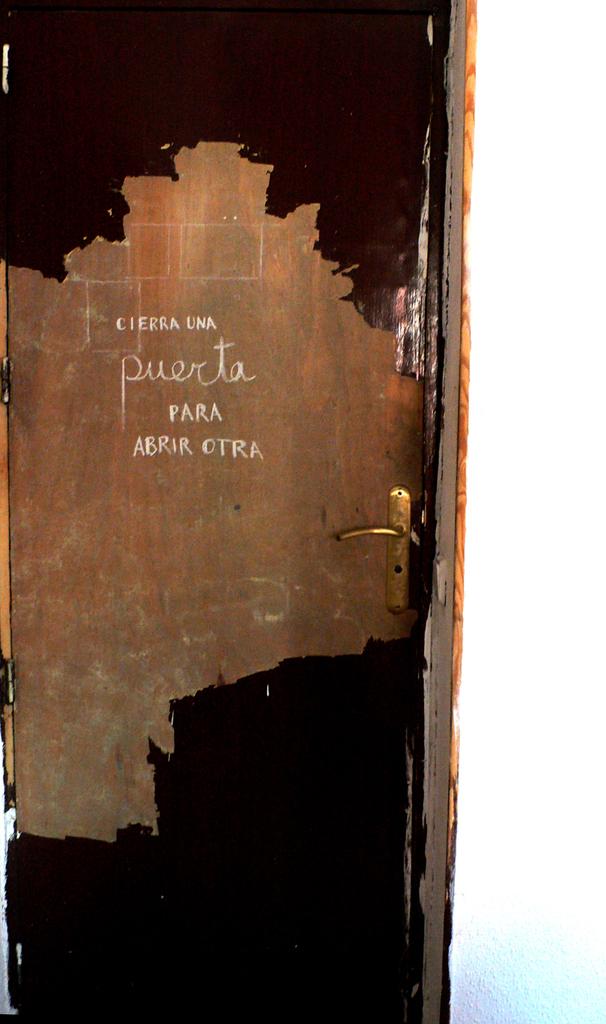 CIERRA UNA
puerta
PARA
ABRIR OTRA